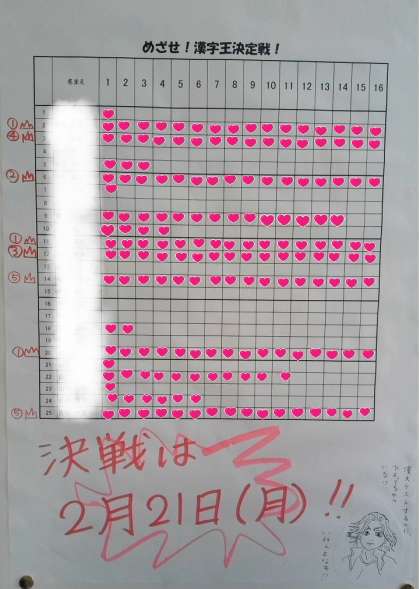 めざせ！漢字王決定戦！
1 2 3 4 5 6 7 8 9 10 11 12 13 14 15 16
①
④
②
①
③
⑤
①
⑤
10
11
12
14
15
16
17
18
19
20
21
22
23
24
25
決戦は
2月21日(月)!!